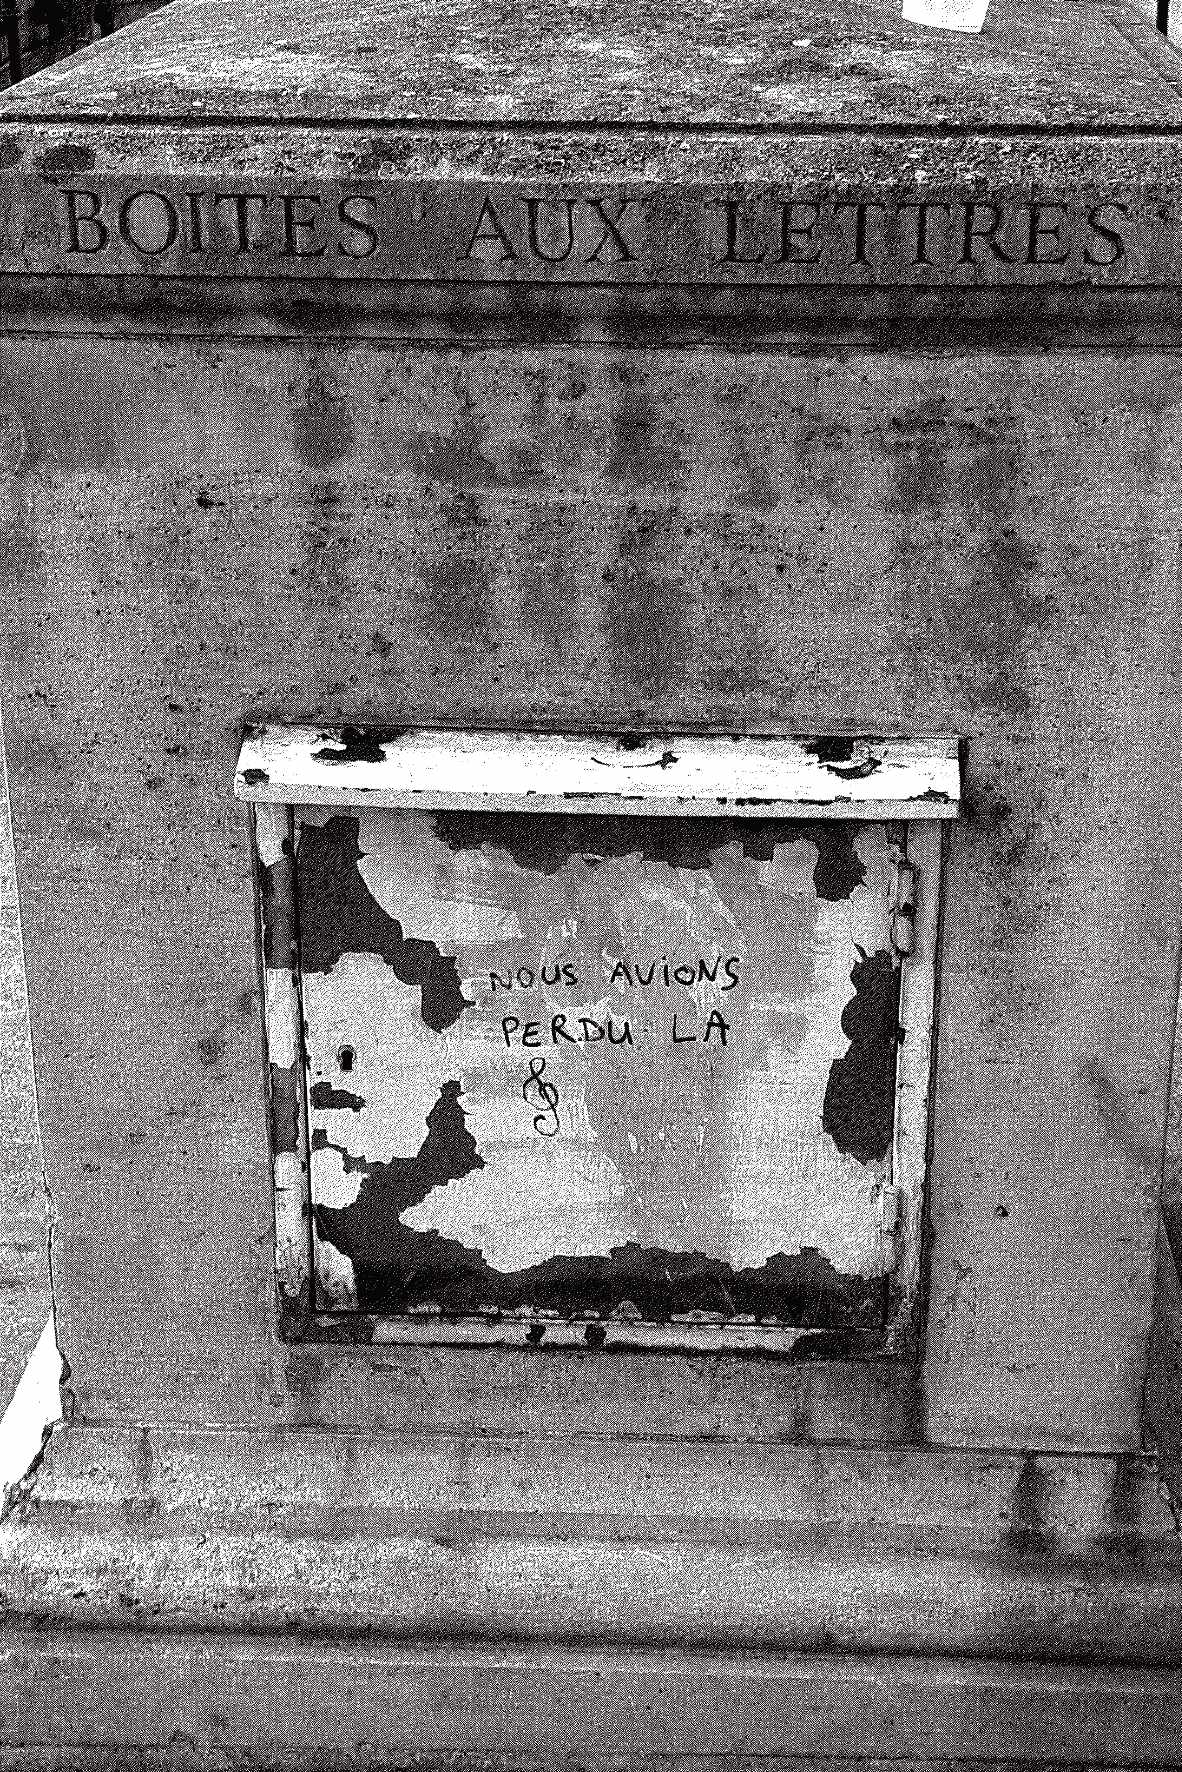 BOITES AUX LETTRES
NOUS AVIONS
PERDU LA
𝄞